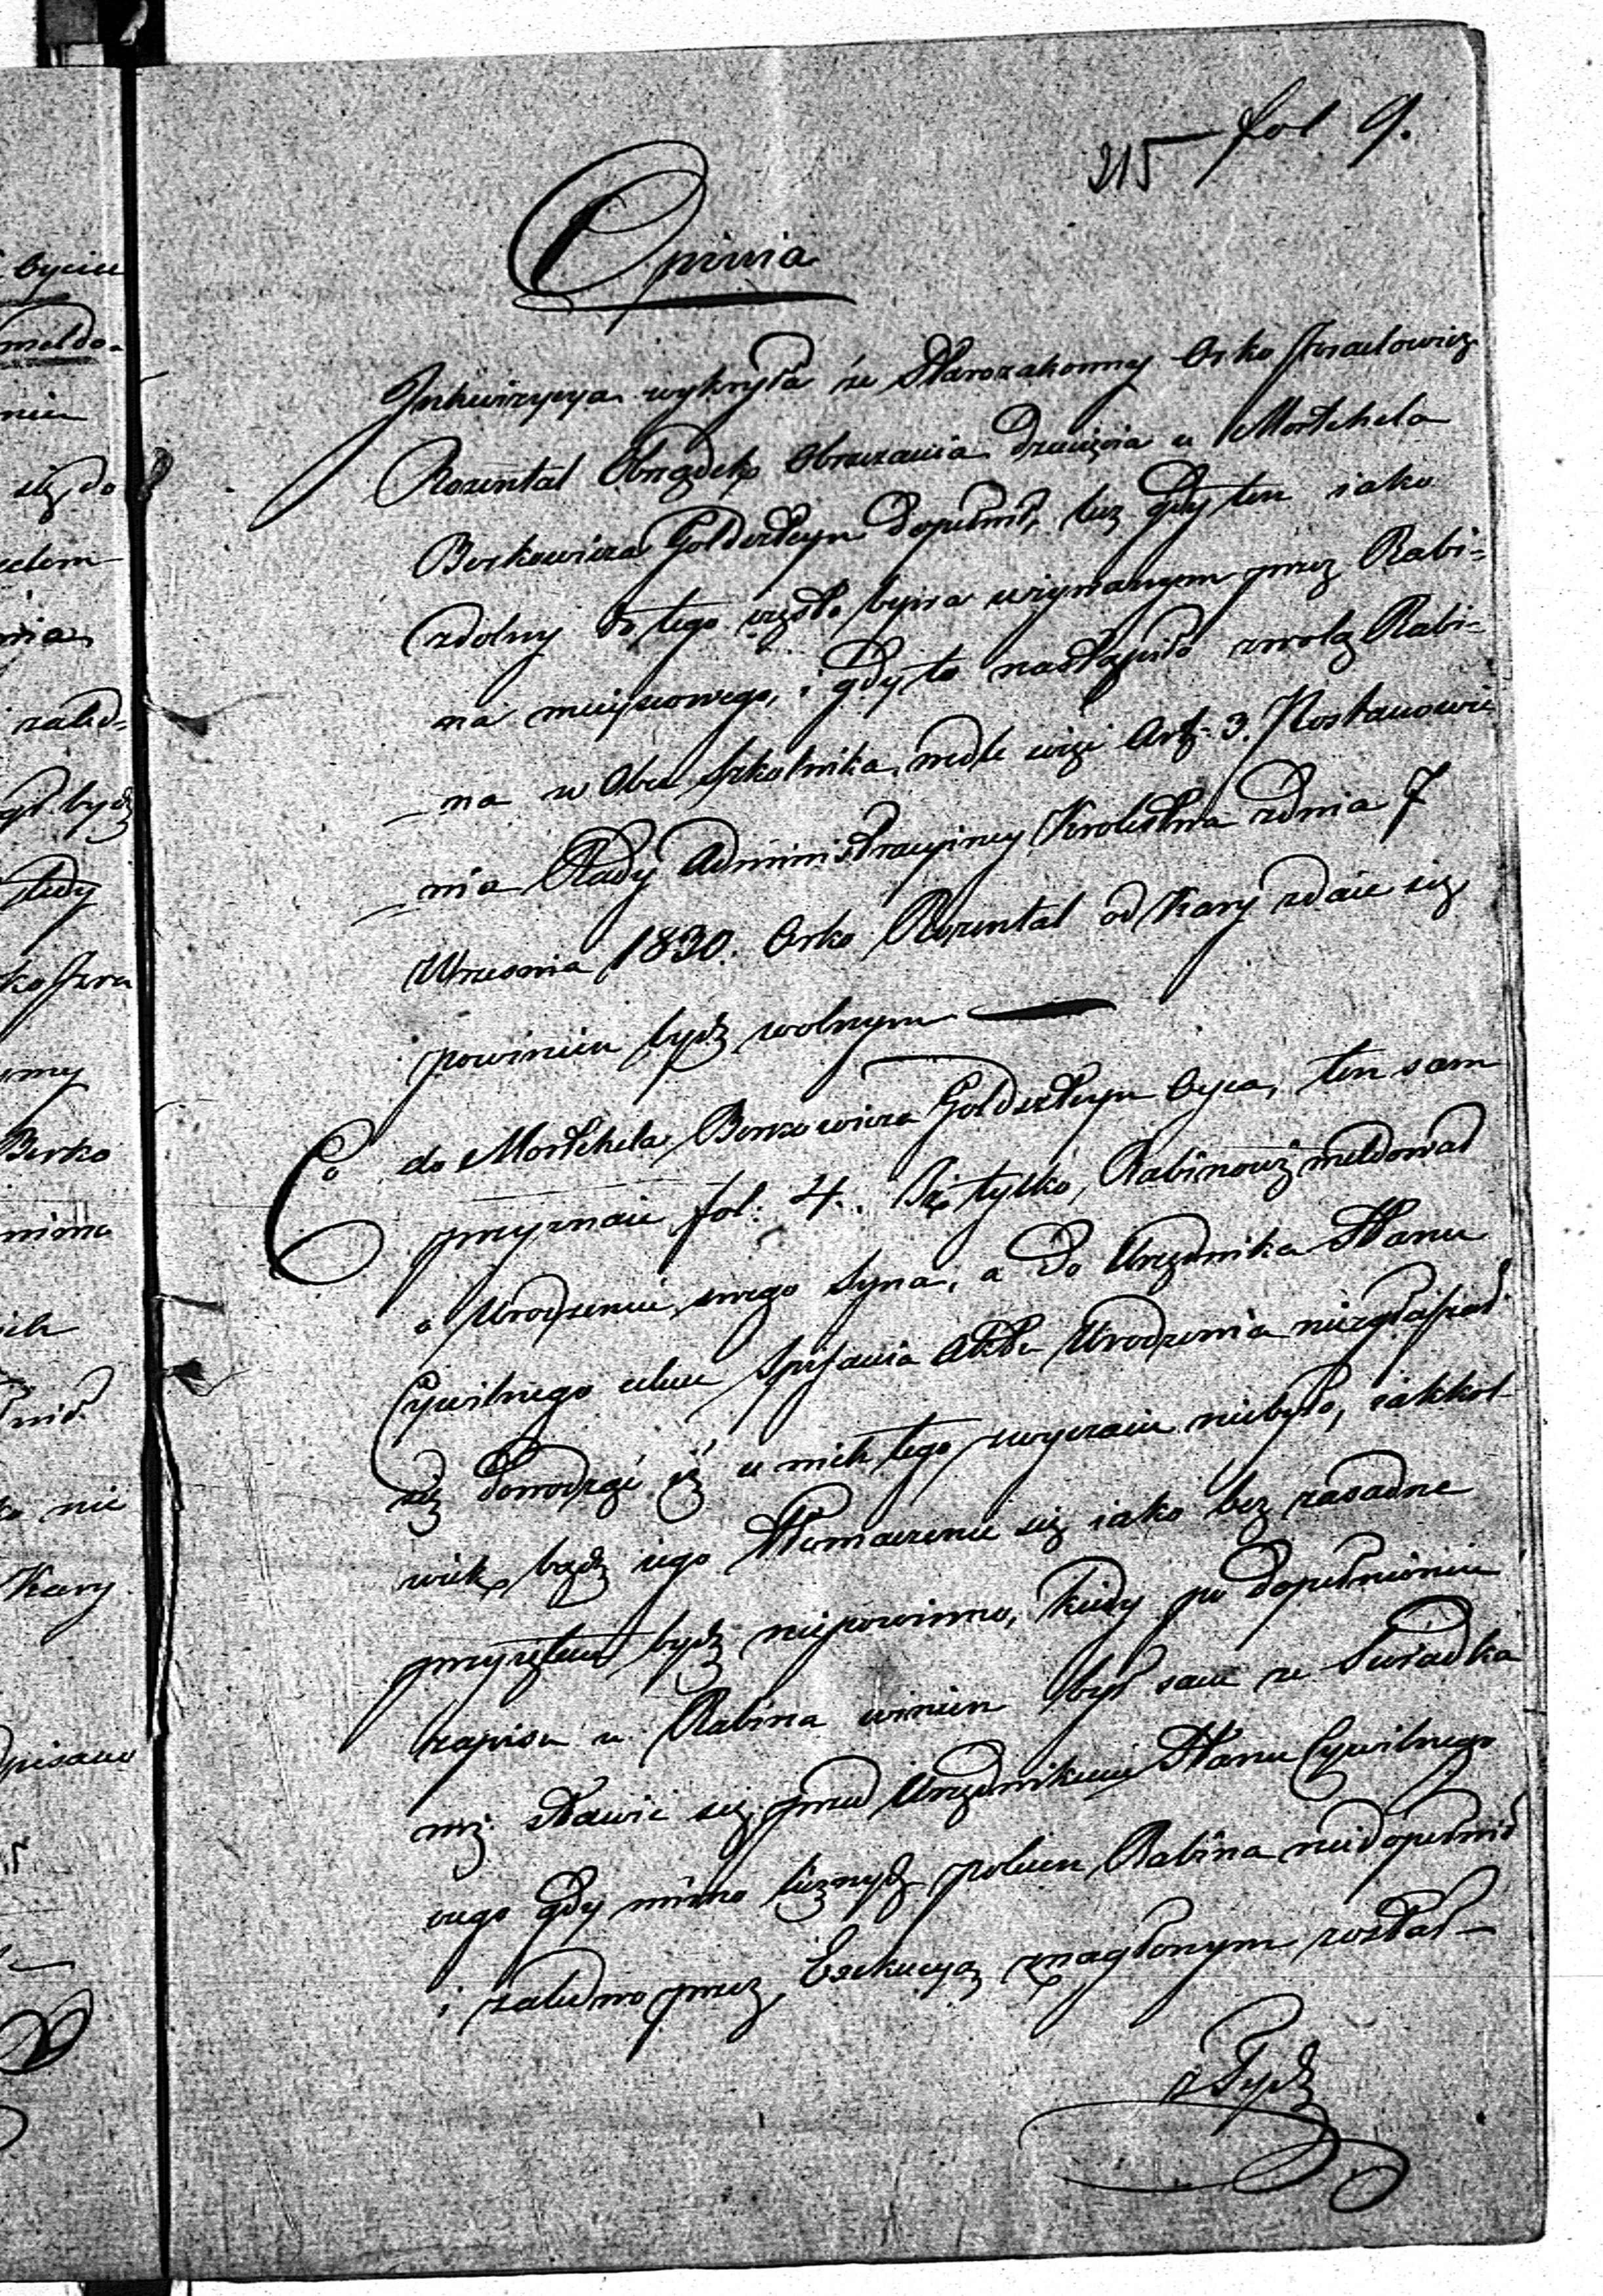 bycia
meldo-
niu
się do
nia
zaled-
być
tedy
ko Izra
Berko
ko nie
Kary
pisano
215 fol 9.
Opinia
Inkwizycya wykryła że Starozakonny Orko Izraelowicz
Rozental Obrządek Obrzezania dziecięcia u Mortchela
Berkowicza Goldszteyn dopełnił, lecz gdy ten iako
zdolny do tego często bywa wzywanym przez Rabi-
na mieyscowego, i gdy to nastąpiło z wolą Rabi-
na w Obec Szkolnika, wedle więc Art: 3. Postanowie
nia Rady Administracyiney Krolestwa z dnia 7
Wrzesnia 1830. Orko Rozental od Kary zdaie się
powinien bydź wolnym
Co do Mortchela Berkowicza Goldszteyn Oyca, ten sam
przyznaie fol: 4. Iż tylko Rabinowi meldował
o Urodzeniu swego Syna, a do Urzędnika Stanu
Cywilnego celem Spisania Aktu Urodzenia niezgłaszał
się dowodząc iż u nich tego zwyczaiu niebyło, iakkol-
wiek bądź iego tłomaczenie się iako bez zasadne
przyiętem bydź niepowinno, kiedy po dopełnieniu
zapisu u Rabina winien był sam ze Swiadka
mi stawić się przed Urzędnikiem Stanu Cywilnego
czego gdy mimo licznych poleceń Rabina niedopełnił
i zaledwo przez Exekucyą znaglonym został